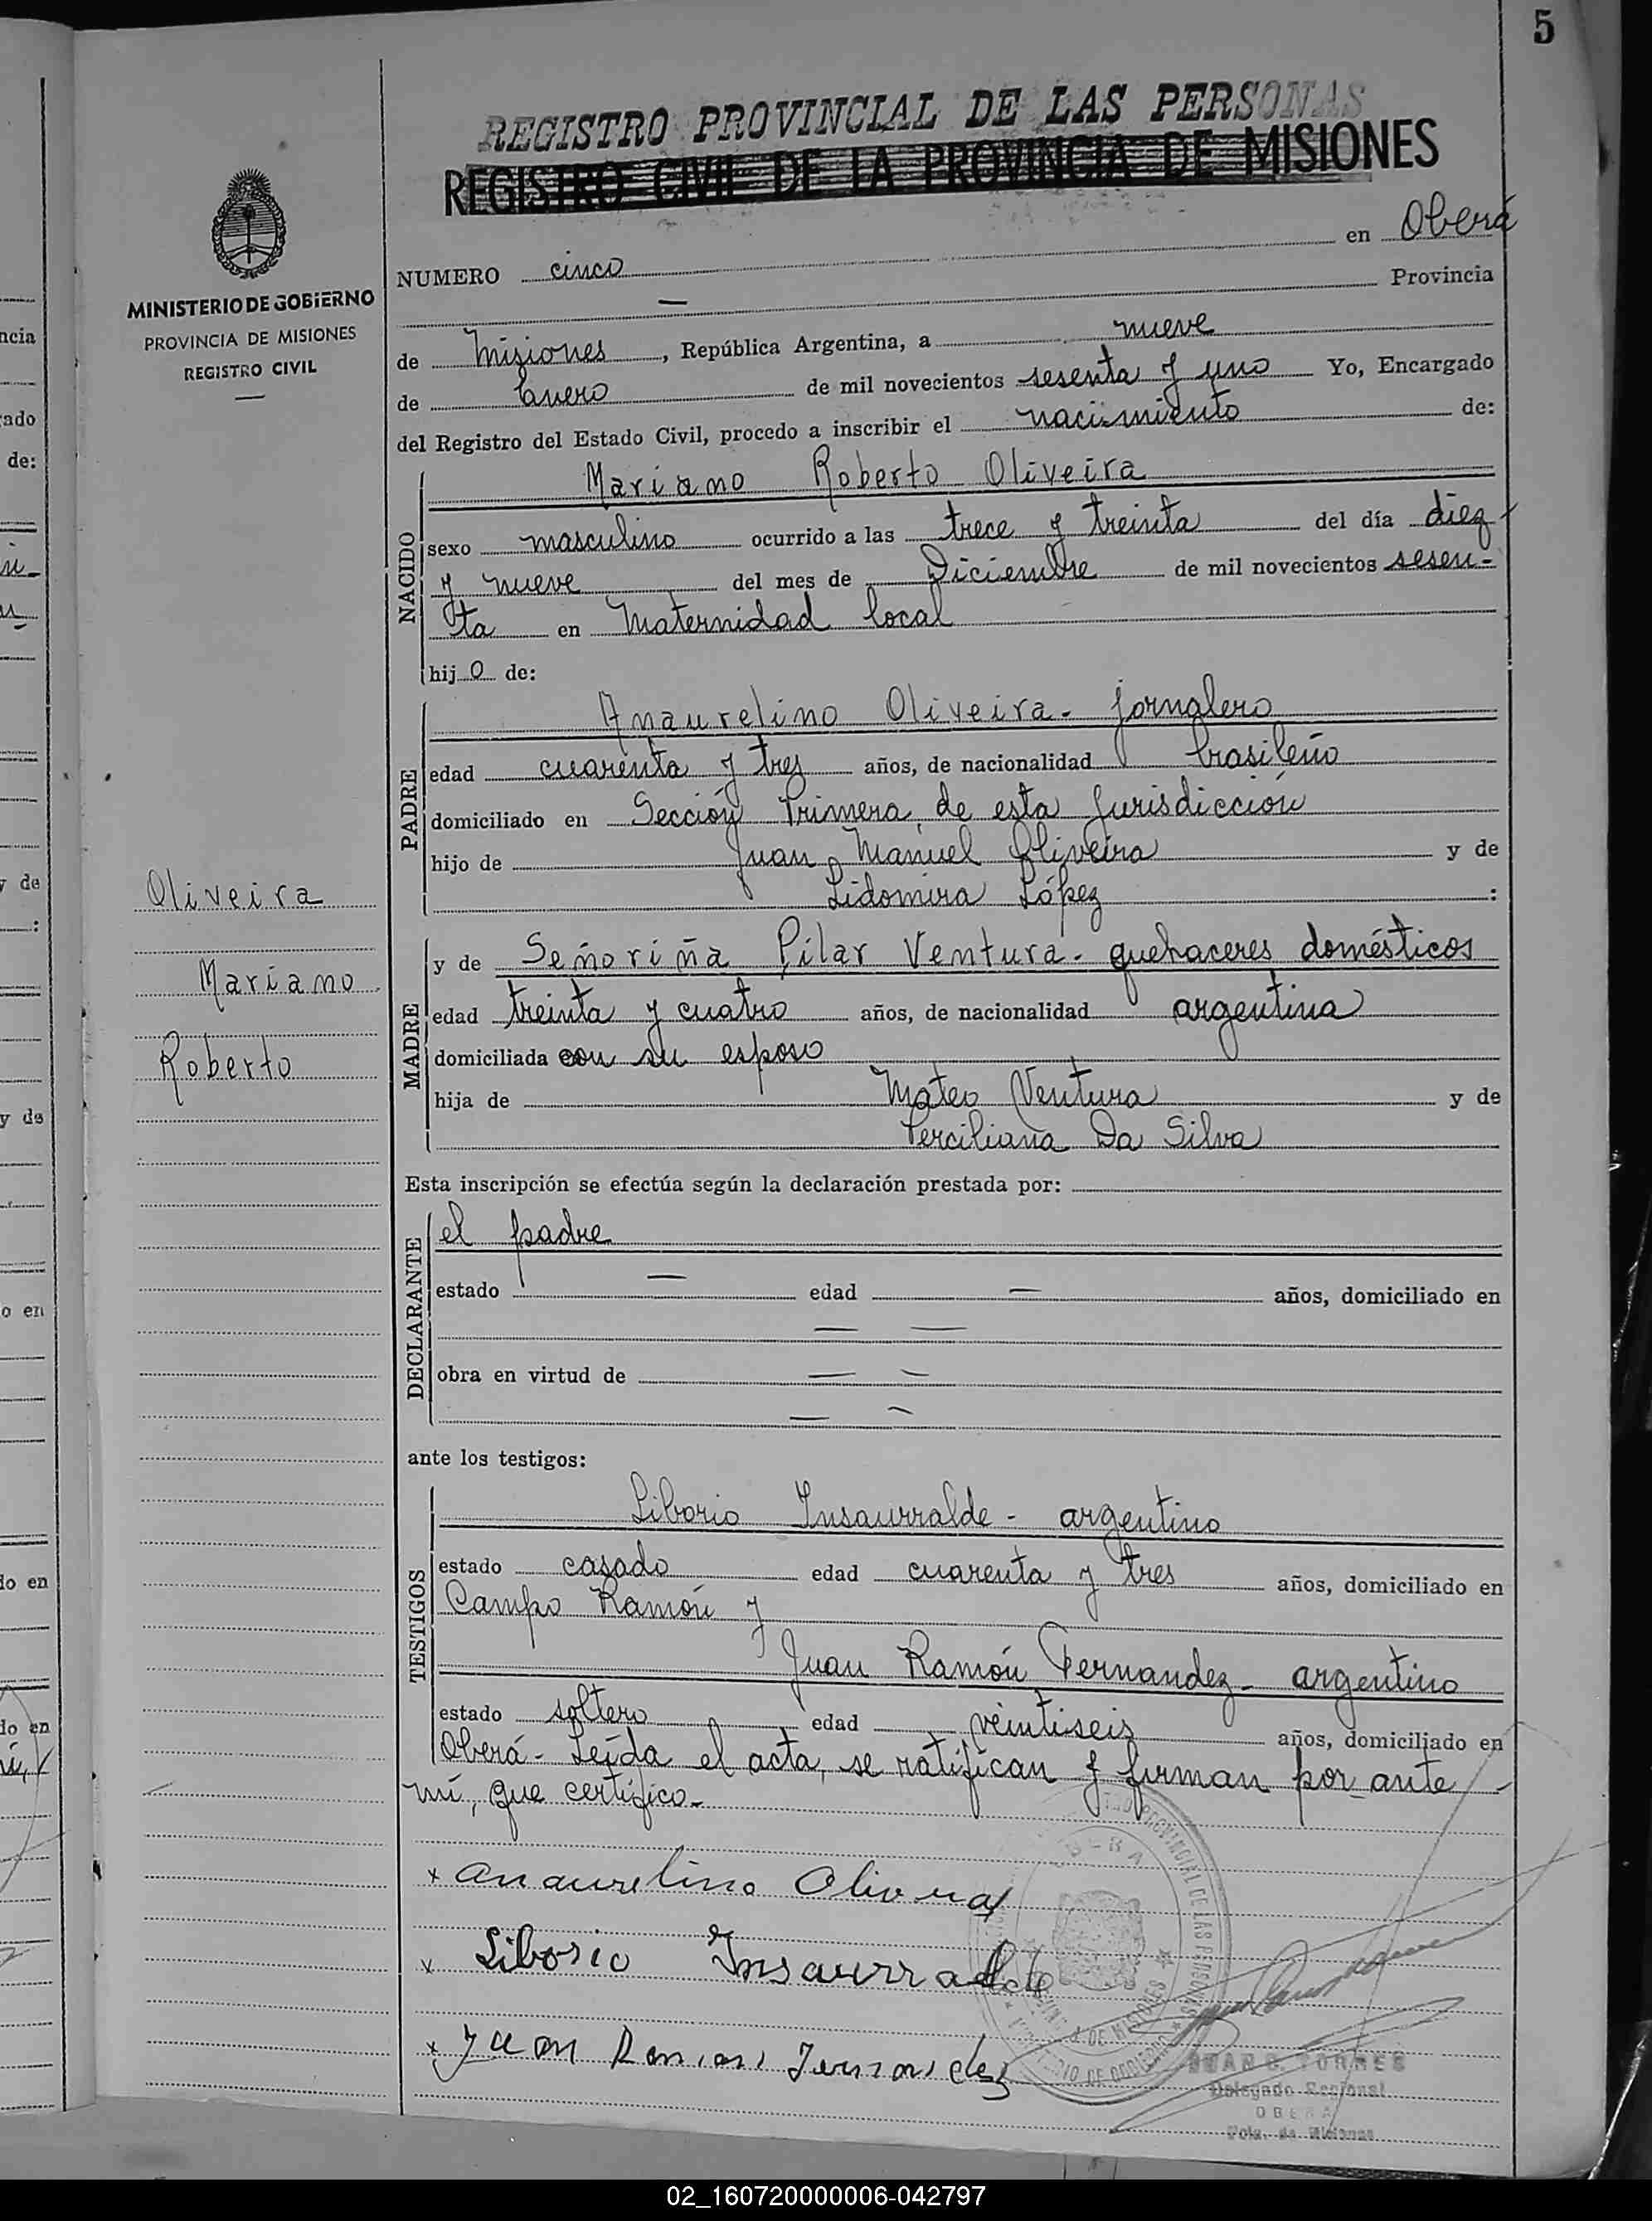 5
REGISTRO PROVINCIAL DE LAS PERSONAS
REGISTRO CIVIL DE LA PROVINCIA DE MISIONES
MINISTERIO DE GOBIERNO
PROVINCIA DE MISIONES
REGISTRO CIVIL
NUMERO cinco en Oberá
— Provincia
de Misiones, República Argentina, a nueve
de Enero de mil novecientos sesenta y uno Yo, Encargado
del Registro del Estado Civil, procedo a inscribir el nacimiento de:
NACIDO
Mariano Roberto Oliveira
sexo masculino ocurrido a las trece y treinta del día diez
y nueve del mes de Diciembre de mil novecientos sesen-
ta en Maternidad local
hijo de:
PADRE
Anaurelino Oliveira - jornalero
edad cuarenta y tres años, de nacionalidad brasileño
domiciliado en Sección Primera, de esta jurisdicción
hijo de Juan Manuel Oliveira y de
Lidomira López :
Oliveira
Mariano
Roberto
MADRE
y de Señoriña Pilar Ventura - quehaceres domésticos
edad treinta y cuatro años, de nacionalidad argentina
domiciliada con su esposo
hija de Mateo Ventura y de
Perciliana Da Silva
Esta inscripción se efectúa según la declaración prestada por:
DECLARANTE
el padre
estado — edad — años, domiciliado en
— —
obra en virtud de — —
— —
ante los testigos:
TESTIGOS
Liborio Insaurralde - argentino
estado casado edad cuarenta y tres años, domiciliado en
Campo Ramón y
Juan Ramón Fernandez - argentino
estado soltero edad veintiseis años, domiciliado en
Oberá - Leída el acta, se ratifican y firman por ante
mí, que certifico.-
x Anaurelino Olivera
x Liborio Insaurralde
x Juan Ramon Fernandez
JUAN TORRES
Delegado Regional
OBERA
Pcia. de Misiones
02_160720000006-042797